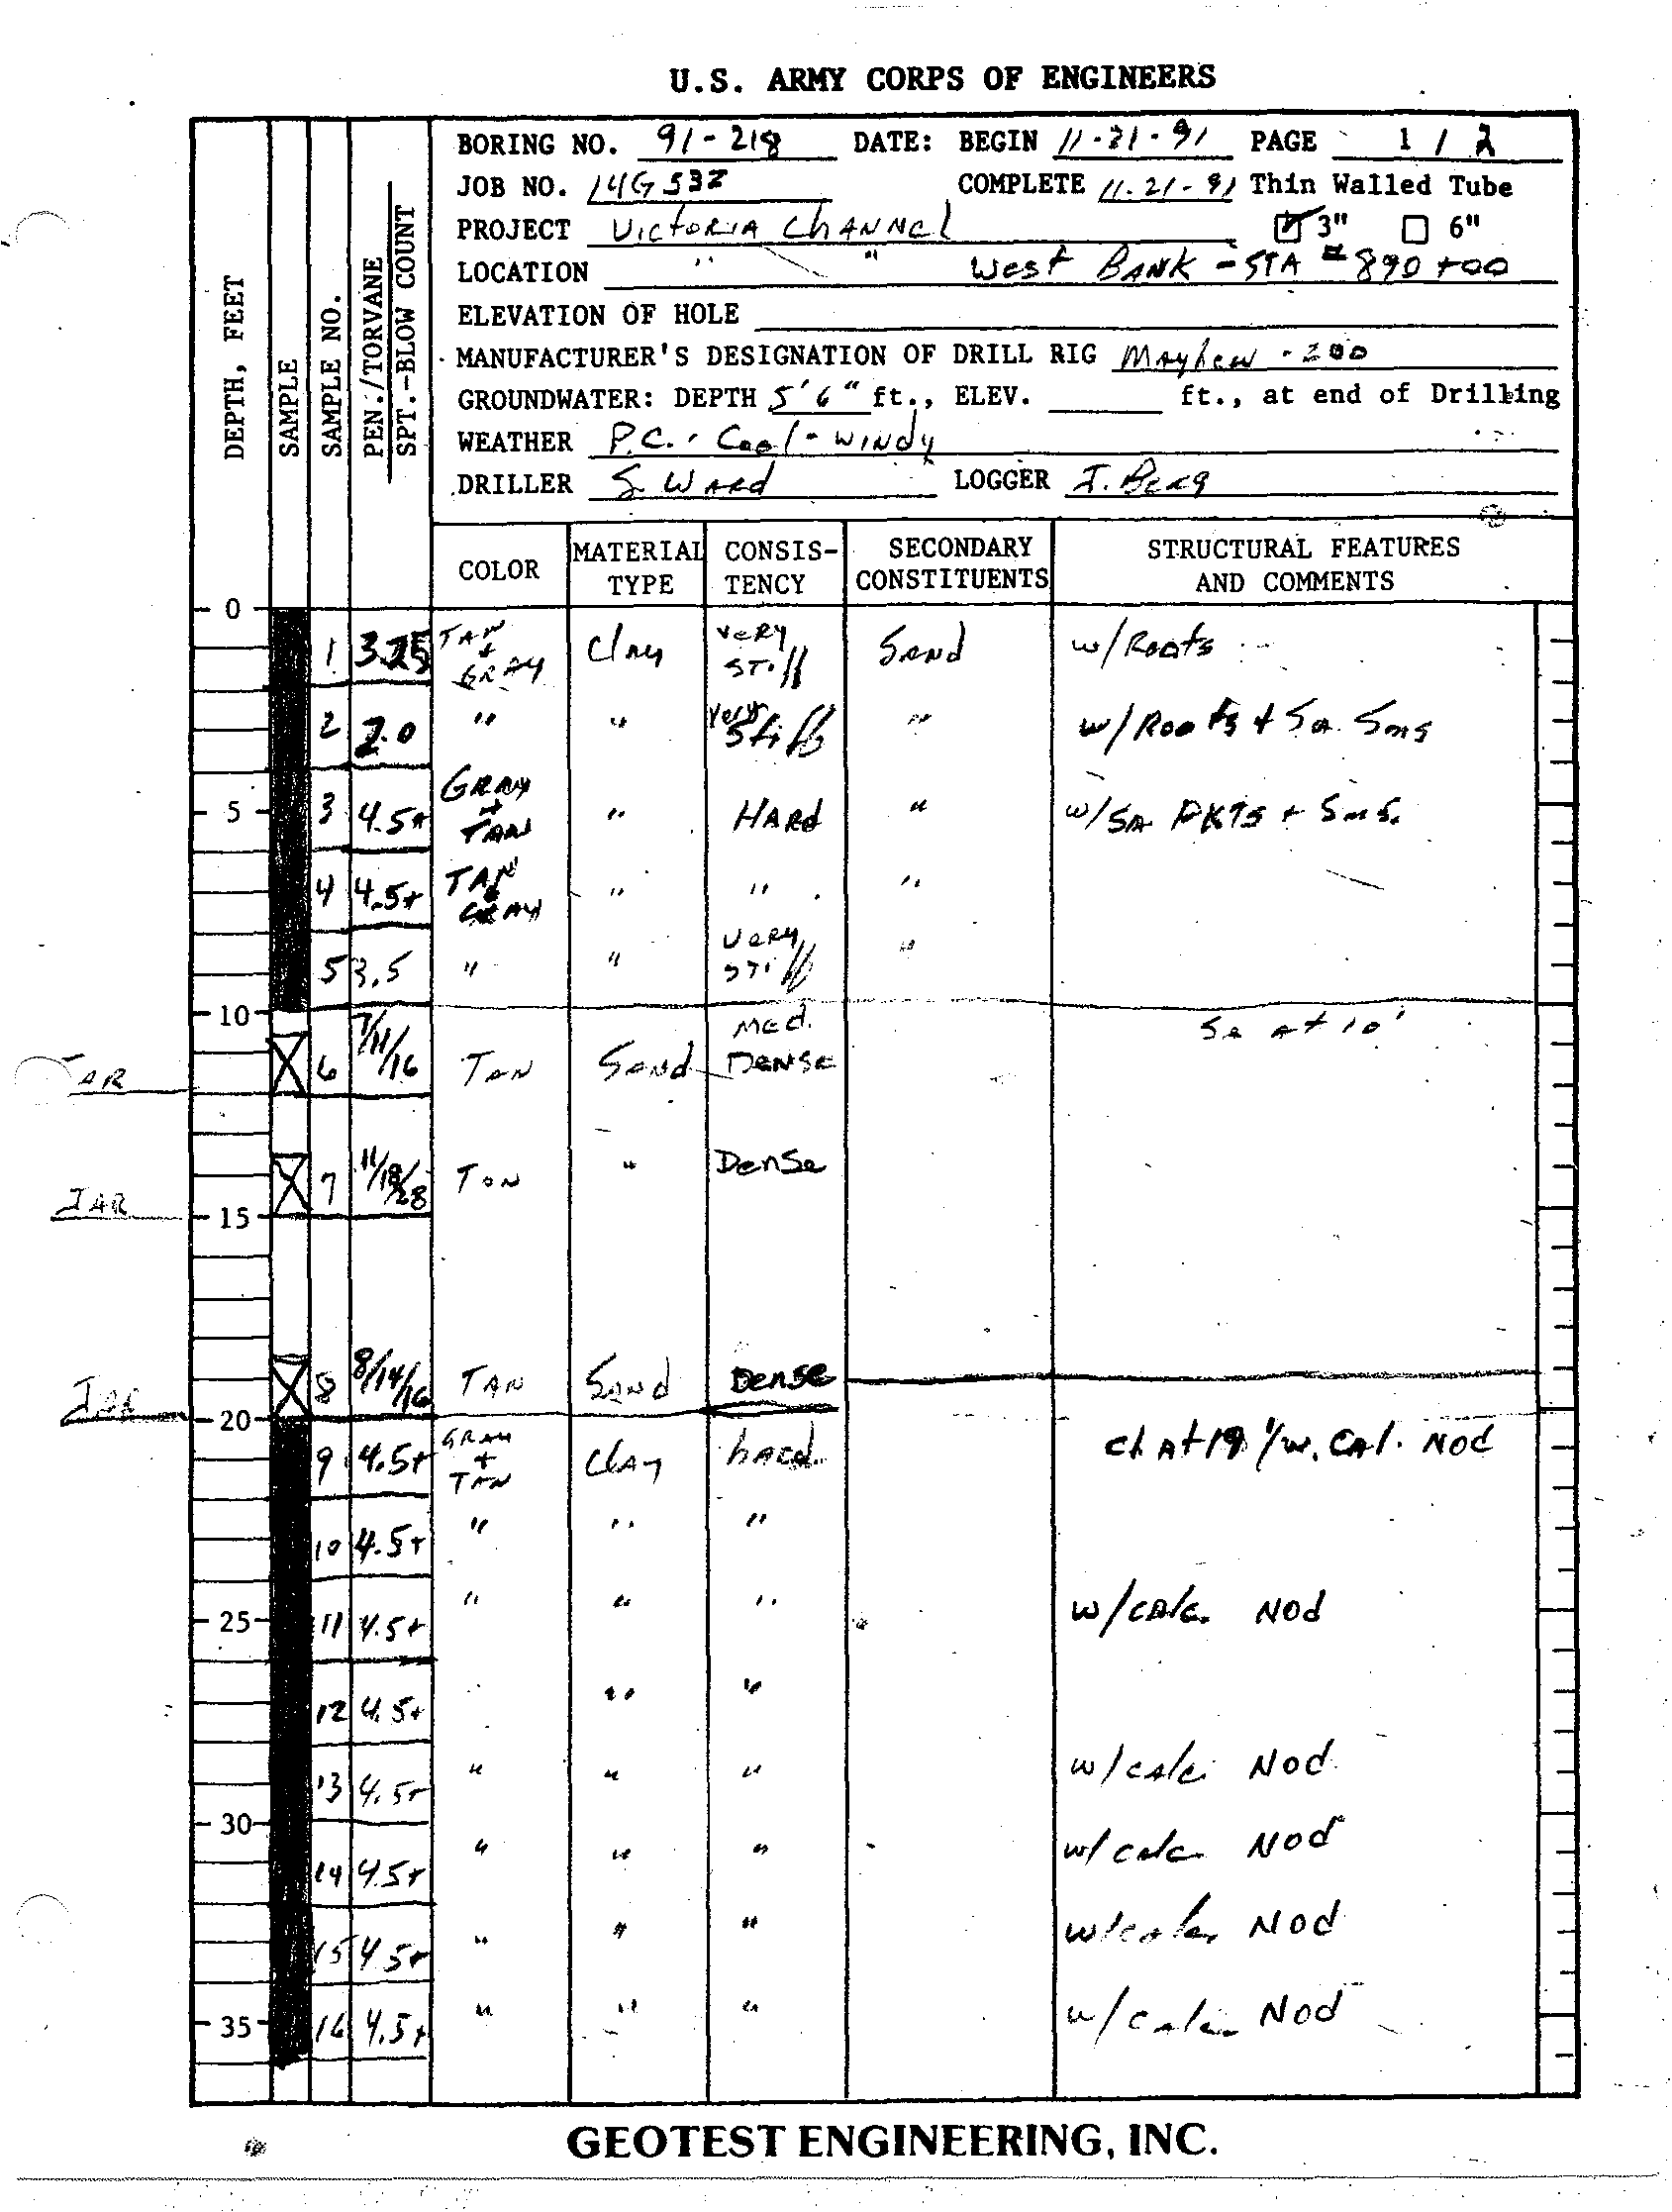 U.S. ARMY CORPS OF ENGINEERS
BORING NO. 91-218 DATE: BEGIN 11-21-91 PAGE 1 / 2
JOB NO. 14G532 COMPLETE 11-21-91 Thin Walled Tube
PROJECT Victoria Channel 3" 6"
LOCATION " " West BANK - STA # 890+00
ELEVATION OF HOLE
MANUFACTURER'S DESIGNATION OF DRILL RIG Mayhew - 200
GROUNDWATER: DEPTH 5'6" ft., ELEV. ft., at end of Drilling
WEATHER P.C. Cool - windy
DRILLER S. WARD LOGGER J. Berg
DEPTH, FEET
SAMPLE
SAMPLE NO.
PEN./TORVANE
SPT.-BLOW COUNT
COLOR MATERIAL TYPE CONSISTENCY SECONDARY CONSTITUENTS STRUCTURAL FEATURES AND COMMENTS
0
1 3.25 TAN + GRAY Clay very stiff Sand w/ Roots
2 2.0 " " very stiff " w/ Roots + Sa. Sms
5 3 4.5+ GRAY + TAN " HARD " w/ SA PKTS + Sms.
4 4.5+ TAN & GRAY " " "
5 3.5 " " very stiff "
10
Sa at 10'
JAR 6 7/11/16 TAN Sand Med. DENSE
7 11/18/28 TAN " Dense
JAR 15
8 8/14/16 TAN Sand Dense
JAR 20
9 4.5+ GRAY + TAN Clay hard Cl At 19' /w. CAl. Nod
10 4.5+ " " "
25 11 4.5+ " " " w/ calc. Nod
12 4.5+ " "
13 4.5+ " " " w/ calc. Nod
30
14 4.5+ " " " w/ calc Nod
15 4.5+ " " " w/ calc. Nod
35 16 4.5+ " " " w/ calc. Nod
GEOTEST ENGINEERING, INC.